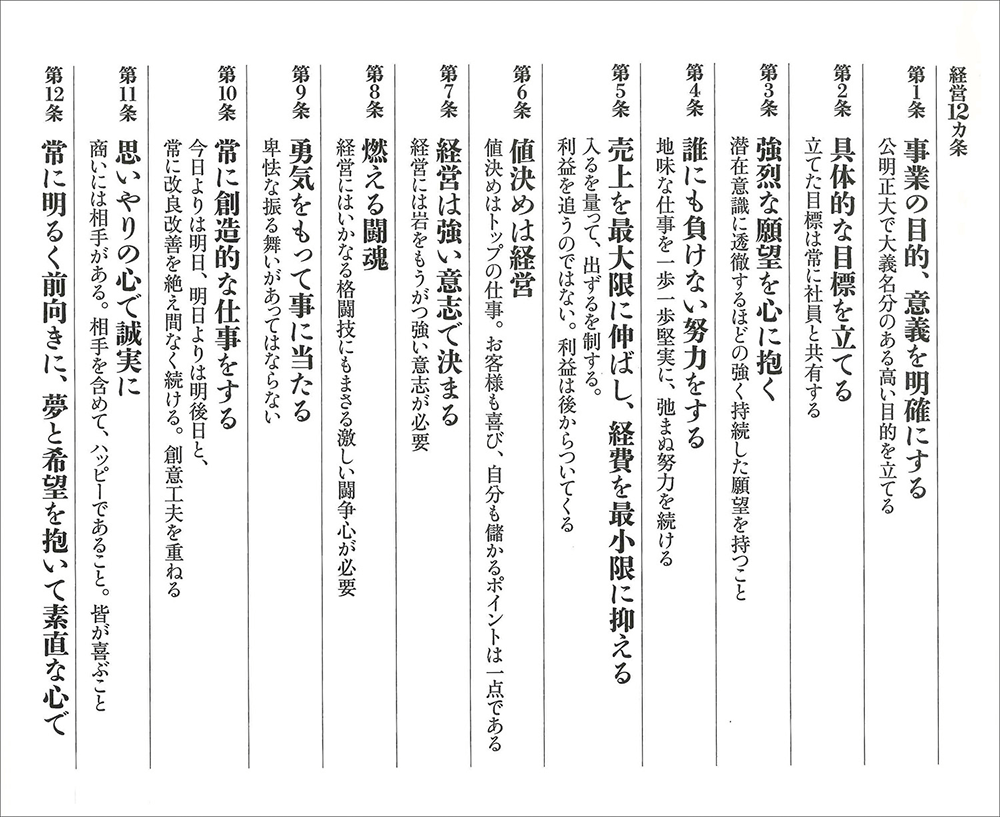 経営12カ条
第1条 事業の目的、意義を明確にする
公明正大で大義名分のある高い目的を立てる
第2条 具体的な目標を立てる
立てた目標は常に社員と共有する
第3条 強烈な願望を心に抱く
潜在意識に透徹するほどの強く持続した願望を持つこと
第4条 誰にも負けない努力をする
地味な仕事を一歩一歩堅実に、弛まぬ努力を続ける
第5条 売上を最大限に伸ばし、経費を最小限に抑える
入るを量って、出ずるを制する。
利益を追うのではない。利益は後からついてくる
第6条 値決めは経営
値決めはトップの仕事。お客様も喜び、自分も儲かるポイントは一点である
第7条 経営は強い意志で決まる
経営には岩をもうがつ強い意志が必要
第8条 燃える闘魂
経営にはいかなる格闘技にもまさる激しい闘争心が必要
第9条 勇気をもって事に当たる
卑怯な振る舞いがあってはならない
第10条 常に創造的な仕事をする
今日よりは明日、明日よりは明後日と、
常に改良改善を絶え間なく続ける。創意工夫を重ねる
第11条 思いやりの心で誠実に
商いには相手がある。相手を含めて、ハッピーであること。皆が喜ぶこと
第12条 常に明るく前向きに、夢と希望を抱いて素直な心で